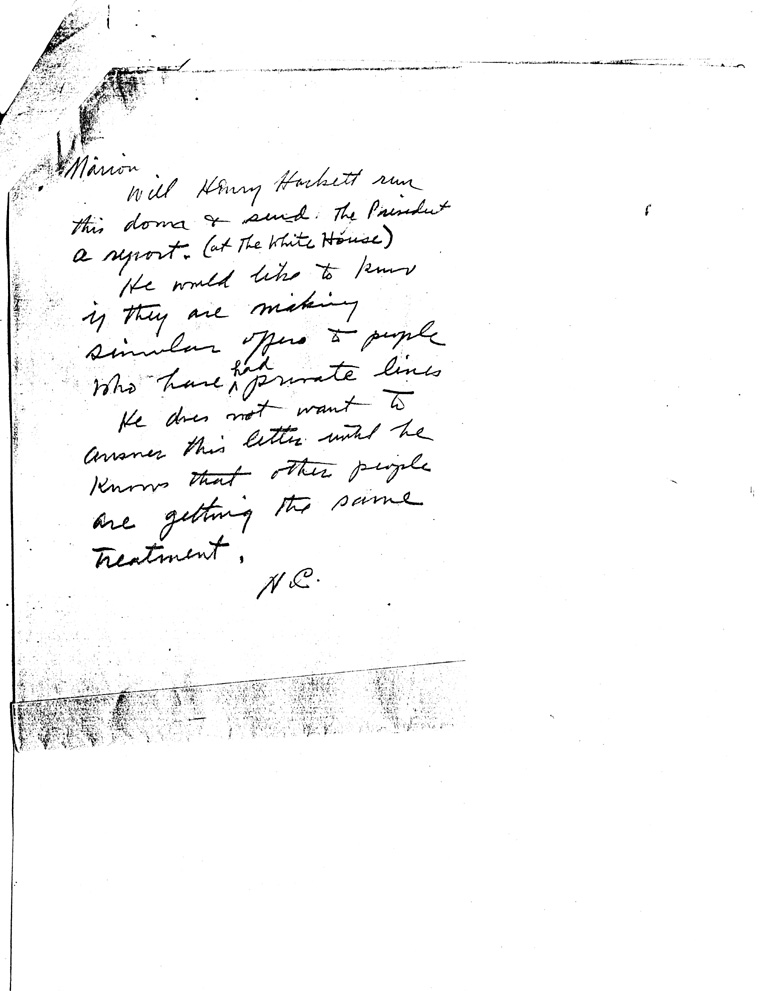 Marion
Will Henry Hackett run
this down & send the President
a report. (at the White House)
He would like to know
if they are making
similar offers to people
who have had private lines
He does not want to
answer this letter until he
knows that other people
are getting the same
treatment.